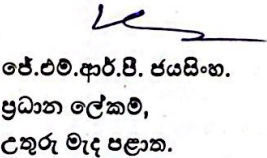 ජේ.එම්.ආර්.පී. ජයසිංහ.
ප්‍රධාන ලේකම්,
උතුරු මැද පළාත.